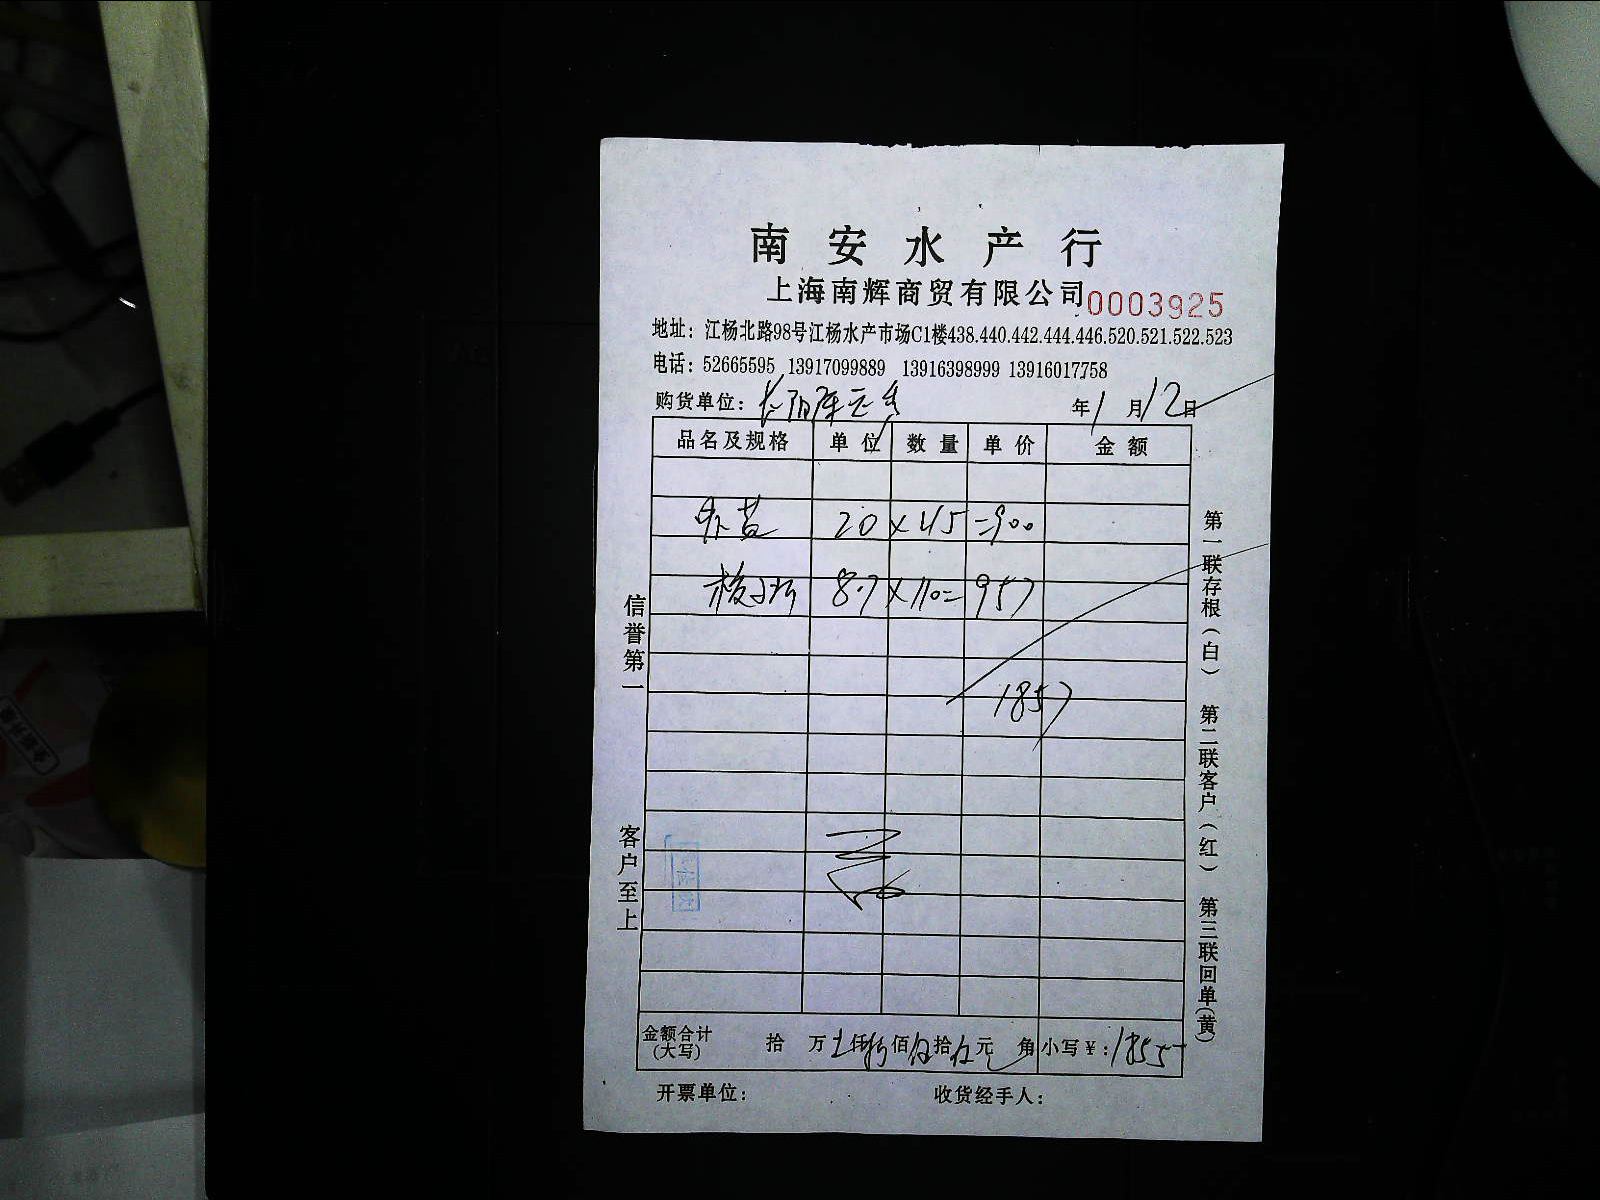 南安水产行
上海南辉商贸有限公司 0003925
地址：江杨北路98号江杨水产市场C1楼438.440.442.444.446.520.521.522.523
电话：52665595 13917099889 13916398999 13916017758
购货单位： 年1月12日
品名及规格 单位 数量 单价 金额
20×45=900
8.7×110=957
1857
金额合计(大写) 拾 万 仟 佰伍拾伍元 角 小写￥：1855
开票单位： 收货经手人：
信誉第一
客户至上
第一联存根(白) 第二联客户(红) 第三联回单(黄)